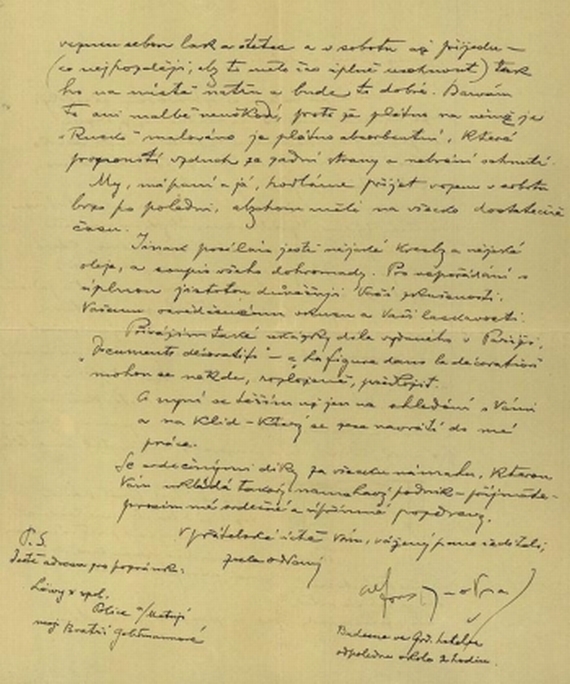 vezmu sebou lak a štětec a v sobotu až přijedu –
(co nejpozději, aby to mělo čas úplně uschnout) tak
ho na místě natřu a bude to dobré. Barvám
to ani malbě neuškodí, proto že plátno na němž je
„Rusko" malováno je plátno absorbentní, které
propouští vzduch ze zadní strany a nebrání schnutí.
My, má paní a já, hodláme přijet vozem v sobotu
brzo po poledni, abychom měli na všecko dostatečně
času.
Jinak posílám ještě nějaké kresby a nějaké
oleje, a soupis všeho dohromady. Pro uspořádání s
úplnou jistotou důvěřuji Vaší zkušenosti.
Vašemu osvědčenému vkusu a Vaší laskavosti.
Přivážím také ukázky díla vydaného v Paříži,
„Documents décoratifs" – a „la figure dans la décoration"
mohou se někde, rozložené, předložit.
A nyní se těším už jen na shledání s Vámi
a na klid – který se zase navrátí do mé
práce.
Se srdečnými díky za všecku námahu, kterou
Vám ukládá takový namáhavý podnik – přijměte –
prosím mé srdečné a upřímné pozdravy.
V přátelské úctě Vám, vážený pane řediteli,
zcela oddaný
P.S.
Ještě adresa pro popravku:
Löwy & spol.
Police n/Metují
mají Bratři Goldmannové
Alfons Mucha
Budeme ve Grd. hotelu
odpoledne okolo 2 hodin.